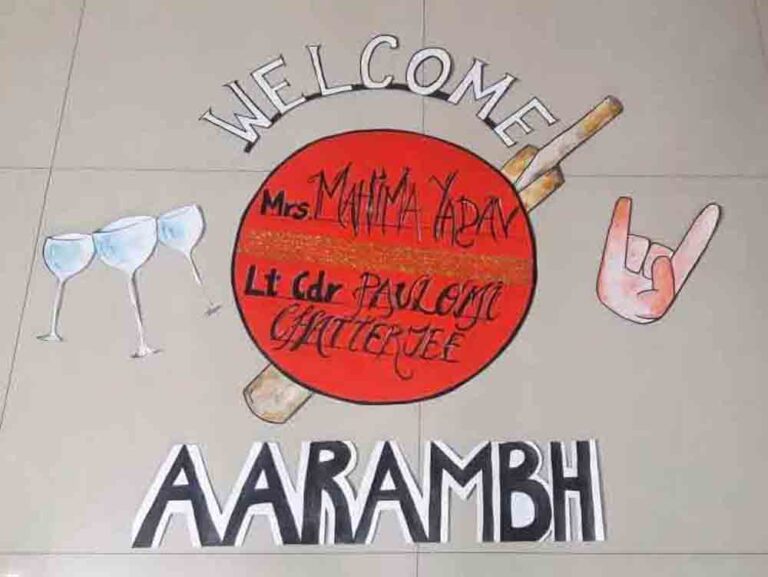 WELCOME
Mrs. MAHIMA YADAV
Lt Cdr PAULOMI
CHATTERJEE
AARAMBH